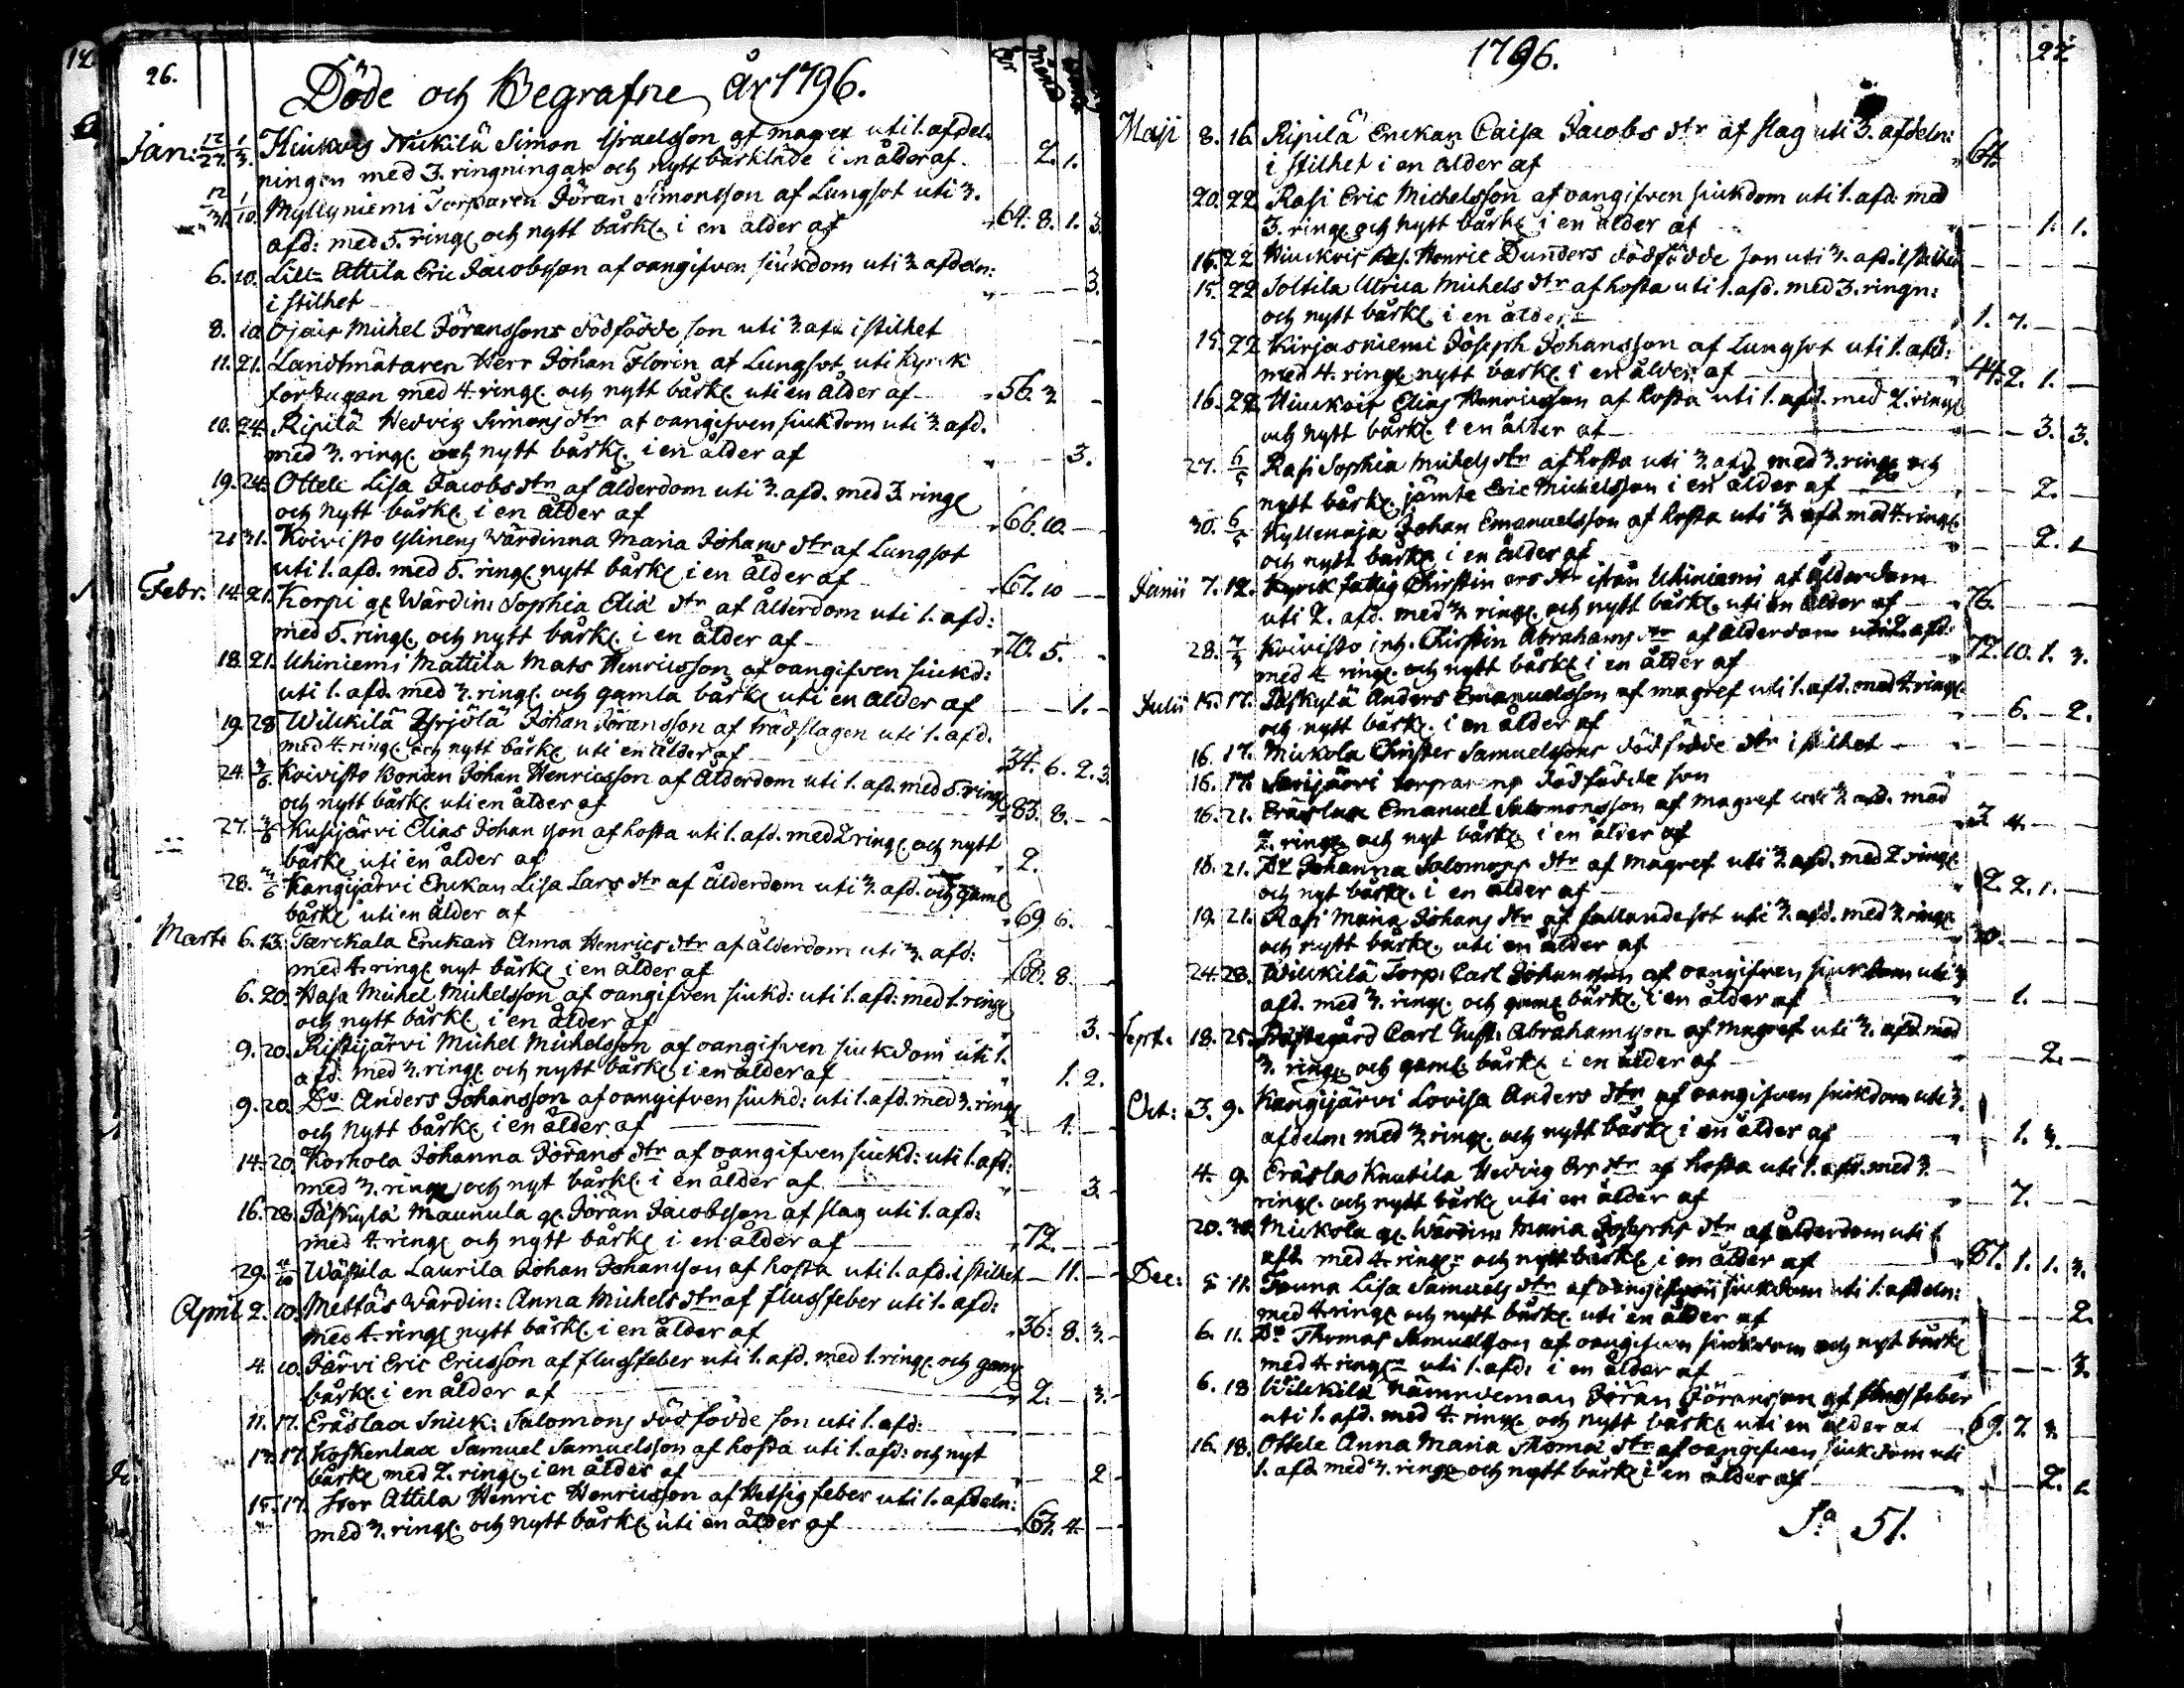 26.
Döde och Begrafne År 1796.
år månad
Jan: 12/27. 1/3. Hinkvis Nickilä Simon Israelsson af magref uti 1. afdel-
ningen med 3. ringningar och nytt bårkläde i en ålder af 2. 1.
12/31. 1/10. Myllyniemi Torparen Jöran Simonsson af Lungsot uti 3.
afd: med 5. ring. och nytt bårkl. i en ålder af 64. 8. 1. 3.
6. 10. Lill Attila Eric Jacobsson af oangifven siukdom uti 3 afdeln:
i stilhet 3.
8. 10. Öjais Michel Jöranssons dödfödde son uti 3. afd i stilhet
11. 21. Landtmätaren Herr Johan Florin af Lungsot uti kyrck
förstugan med 4. ring. och nytt bårkl. uti en ålder af 56. 3
10. 24. Ripilä Hedvig Simons dtr af oangifven siukdom uti 3. afd.
med 3. ring. och nytt bårkl. i en ålder af 3.
19. 24. Ottele Lisa Jacobs dtr af ålderdom uti 3. afd. med 3. ring.
och nytt bårkl. i en ålder af 66. 10.
21 31. Koivisto Ylinens Wärdinna Maria Johans dtr af Lungsot
uti 1. afd. med 5. ring. nytt bårkl i en ålder af 67. 10
Febr. 14. 21. Korpi gl Wärdin: Sophia Eliæ dtr af ålderdom uti 1. afd:
med 5. ring. och nytt bårkl. i en ålder af 70. 5.
18. 21. Uhiniemi Mattila Mats Henricsson af oangifven siukd:
uti 1. afd. med 3. ring. och gamla bårkl uti en ålder af 1.
19. 28. Wilckilä Yrjölä Johan Jöransson af trädslagen uti 1. afd.
med 4. ring. och nytt bårkl uti en ålder af 34. 6. 2. 3.
24. 3/6. Koivisto Bonden Johan Henricsson af Ålderdom uti 1. afd. med 5. ring.
och nytt bårkl. uti en ålder af 83. 8.
27. 3/6 Kusijärvi Elias Johansson af hosta uti 1. afd. med 2 ring. och nytt
bårkl uti en ålder af 2.
28. 3/6 Kangijärvi Enckan Lisa Lars dtr af ålderdom uti 3. afd. och gaml
bårkl uti en ålder af 69. 6.
Marti 6. 13. Tarckala Enckan Anna Henrics dtr af ålderdom uti 3. afd:
med 4. ring. nyt bårkl i en ålder af 68. 8.
6. 20. Hasa Michel Michelsson af oangifven siukd: uti 1. afd: med 1. ring.
och nytt bårkl i en ålder af 3.
9. 20. Ristijärvi Michel Michelsson af oangifven siukdom uti 1.
afd. med 3. ring. och nytt bårkl i en ålder af 1. 2.
9. 20. Do Anders Johansson af oangifven siukd: uti 1. afd. med 3. ring.
och nytt bårkl. i en ålder af 1.
14. 20. Korhola Johanna Jörans dtr af oangifven siukd: uti 1. afd:
med 3. ring. och nyt bårkl. i en ålder af 3.
16. 28. Päskylä Maunula gl. Jöran Jacobsson af slag uti 1. afd:
med 4. ring. och nytt bårkl i en ålder af 72.
29. Wästila Laurila Johan Johansson af hosta uti 1. afd. i stilhet 11.
April 2. 10. Mettäs Wärdin: Anna Michels dtr af flussfeber uti 1. afd:
med 4. ring. nytt bårkl. i en ålder af 36. 8. 3.
4. 10. Järvi Eric Ericsson af flussfeber uti 1. afd. med 1. ring. och gaml
bårkl. i en ålder af 2. 3.
11. 17. Eräslax Snick: Salomons dödfödde son uti 1. afd:
17. 17. Koskenlax Samuel Samuelsson af hosta uti 1. afd: och nyt
bårkl med 2. ring. i en ålder af 2
15. 17. Stor Attila Henric Henricsson af Hetsig feber uti 1. afdeln:
med 3. ring. och nytt bårkl. uti en ålder af 63. 4.
1796.
27.
Maji 8. 16. Ripilä Enckan Caisa Jacobs dtr af slag uti 3. afdeln:
i stilhet i en ålder af 64.
20. 22. Rasi Eric Michelsson af oangifven siukdom uti 1. afd: med
3. ring. och nytt bårkl i en ålder af 1. 1.
16. 22 Hinckvis Henric Dunders dödfödde son uti 3. afd. i stilhet
15. 22 Soltila Ulrica Michels dtr af hosta uti 1. afd. med 3. ringn:
och nytt bårkl. i en ålder 1. 7.
15. 22 Kirjasniemi Joseph Johansson af Lungsot uti 1. afd:
med 4. ring. nytt bårkl. i en ålder af 44. 2. 1.
16. 22 Hinckois Elias Henricsson af hosta uti 1. afd. med 2. ring.
och nytt bårkl. i en ålder af 3. 3.
27. 6/5 Rasi Sophia Michels dtr af hosta uti 3. afd. med 3. ring. och
nytt bårkl. jämte Eric Michelsson i en ålder af 2.
30. 6/5 Kyllenaja Johan Emanuelsson af hosta uti 3. afd med 4. ring.
och nytt bårkl. i en ålder af 2. 1
Junii 7. 12. Kyrck fattig Christin ers dtr ifrån Uhiniemi af ålderdom
uti 2. afd. med 3. ring. och nytt bårkl. uti en ålder af 76.
28. 7/3 Koivisto inh. Christin Abrahams dtr af ålderdom uti 2. afd:
med 4. ring. och nytt bårkl i en ålder af 72. 10. 1. 3.
Julii 15. 17. Päskylä Anders Emanuelsson af magref uti 1. afd. med 4. ring.
och nytt bårkl. i en ålder af 6. 2.
16. 17. Mickola Christer Samuelssons dödfödde dtr i stilhet
16. 17. Sarijärvi torparens dödfödde son
16. 21. Eräslax Emanuel Salomonsson af magref uti 3. afd. med
2. ring. och nyt bårkl i en ålder af 4.
18. 21. Do Johanna Salomons dtr af magref uti 3. afd. med 2. ring.
och nyt bårkl. i en ålder af 2. 2. 1.
19. 21. Rasi Maria Johans dtr af fallandesot uti 3. afd. med 3. ring.
och nytt bårkl. uti en ålder af 30.
24. 28. Wilckilä Torp: Carl Johansson af oangifven siukdom uti 3
afd. med 3. ring. och gaml bårkl. i en ålder af 1.
Sept. 18. 25. Prästegård Carl Gust: Abrahamsson af magref uti 3. afd. med
3. ring. och gaml. bårkl. i en ålder af 2.
Oct: 3. 9. Kangijärvi Lovisa Anders dtr af oangifven siukdom uti 3.
afdeln: med 3 ring. och nytt bårkl i en ålder af 1. 3.
4. 9. Eräslax Knutila Hedvig Ers dtr af hosta uti 1. afd. med 3.
ring. och nytt bårkl uti en ålder af 7.
20. 30. Mickola gl. Wärdinn Maria Josephs dtr af ålderdom uti 1
afd. med 4. ring. och nytt bårkl i en ålder af 81. 1. 1. 3.
Dec: 5 11. Touna Lisa Samuels dtr af oangifven siukdom uti 1. afdeln:
med 4. ring. och nytt bårkl. uti en ålder af 2.
6. 11. Do Thomas Samuelsson af oangifven siukdom och nyt bårkl
med 4. ring. uti 1. afd: i en ålder af 3.
6. 18 Wilckilä Nämndeman Jöran Jöransson af flussfeber
uti 1. afd. med 4. ring. och nytt bårkl. uti en ålder af 69. 7. 3.
16. 18. Ottele Anna Maria Thomæ dtr af oangifven siukdom uti
1. afd. med 3. ring. och nytt bårkl i en ålder af 2. 1.
Sa 51.